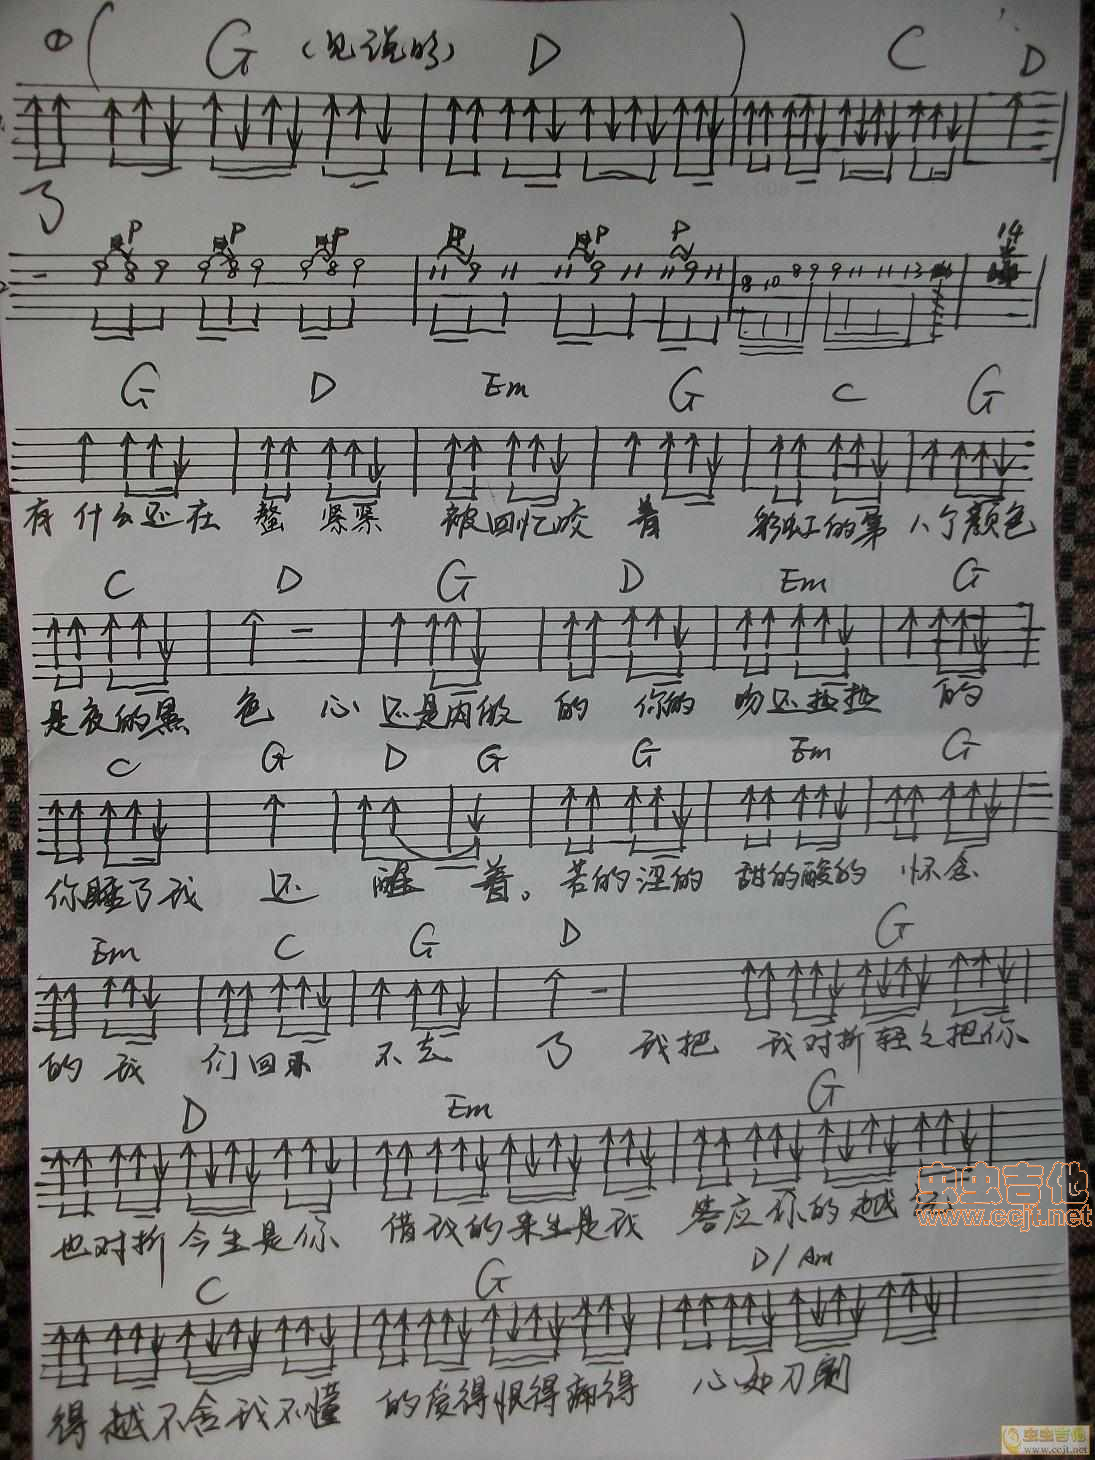 ① ( G (见说明) D ) C D
了
P P P P P P 14
9 8 9 9 8 9 9 8 9 11 9 11 11 9 11 11 9 11 8 10 8 9 9 11 11 13
G D Em G C G
有什么还在 螫 紧紧 被回忆咬 着 彩虹的第 八个颜色
C D G D Em G
是夜的黑 色 心 还是 的 你的 吻还 的
C G D G G Em G
你睡了我 还 醒 着。苦的涩的 甜的酸的 怀念
Em C G D G
的 我 们回 不去 了 我把 我对折 轻轻把你
D Em G
也对折 今生是你 借我的 来生是我 答应你的 越
虫虫吉他
www.ccjt.net
C G D/Am
得越不舍 我不懂 的爱得恨得痛得 心如刀割
虫虫吉他
www.ccjt.net